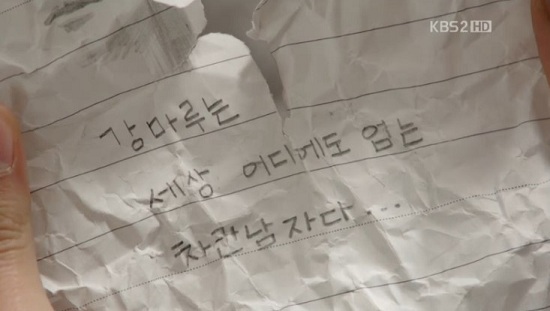 KBS2 HD
강마루는
세상 어디에도 업는
차칸남자다...